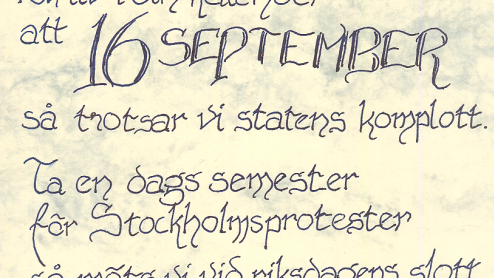 att 16 SEPTEMBER
så trotsar vi statens komplott.
Ta en dags semester
för Stockholmsprotester
så möts vi vid riksdagens slott